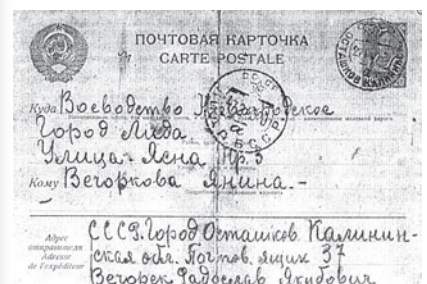 ПОЧТОВАЯ КАРТОЧКА
CARTE POSTALE
Куда Воеводство
Город Лида
Улица Ясна Нр. 3
Кому Вечоркова Янина.-
Адрес
отправителя
Adresse
de l'expéditeur
СССР. Город Осташков Калинин-
ская обл. Почтов. ящик 37
Вечорек Радослав Якубович